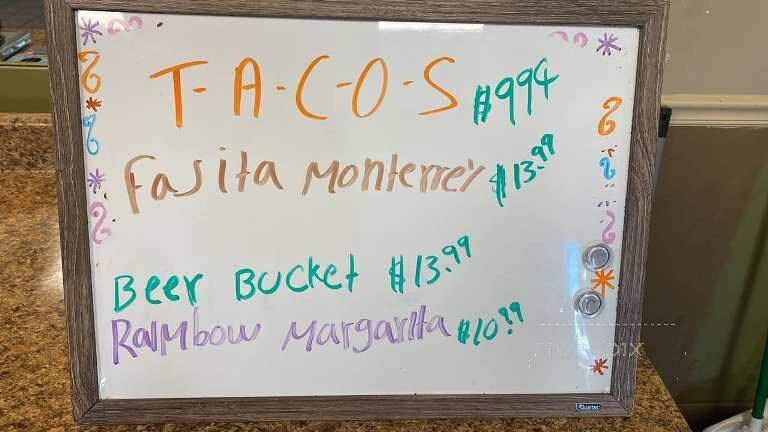 T-A-C-O-S $99¢
Fajita Monterrey $13.99
Beer Bucket $13.99
Rainbow Margarita $10.99
Quartet